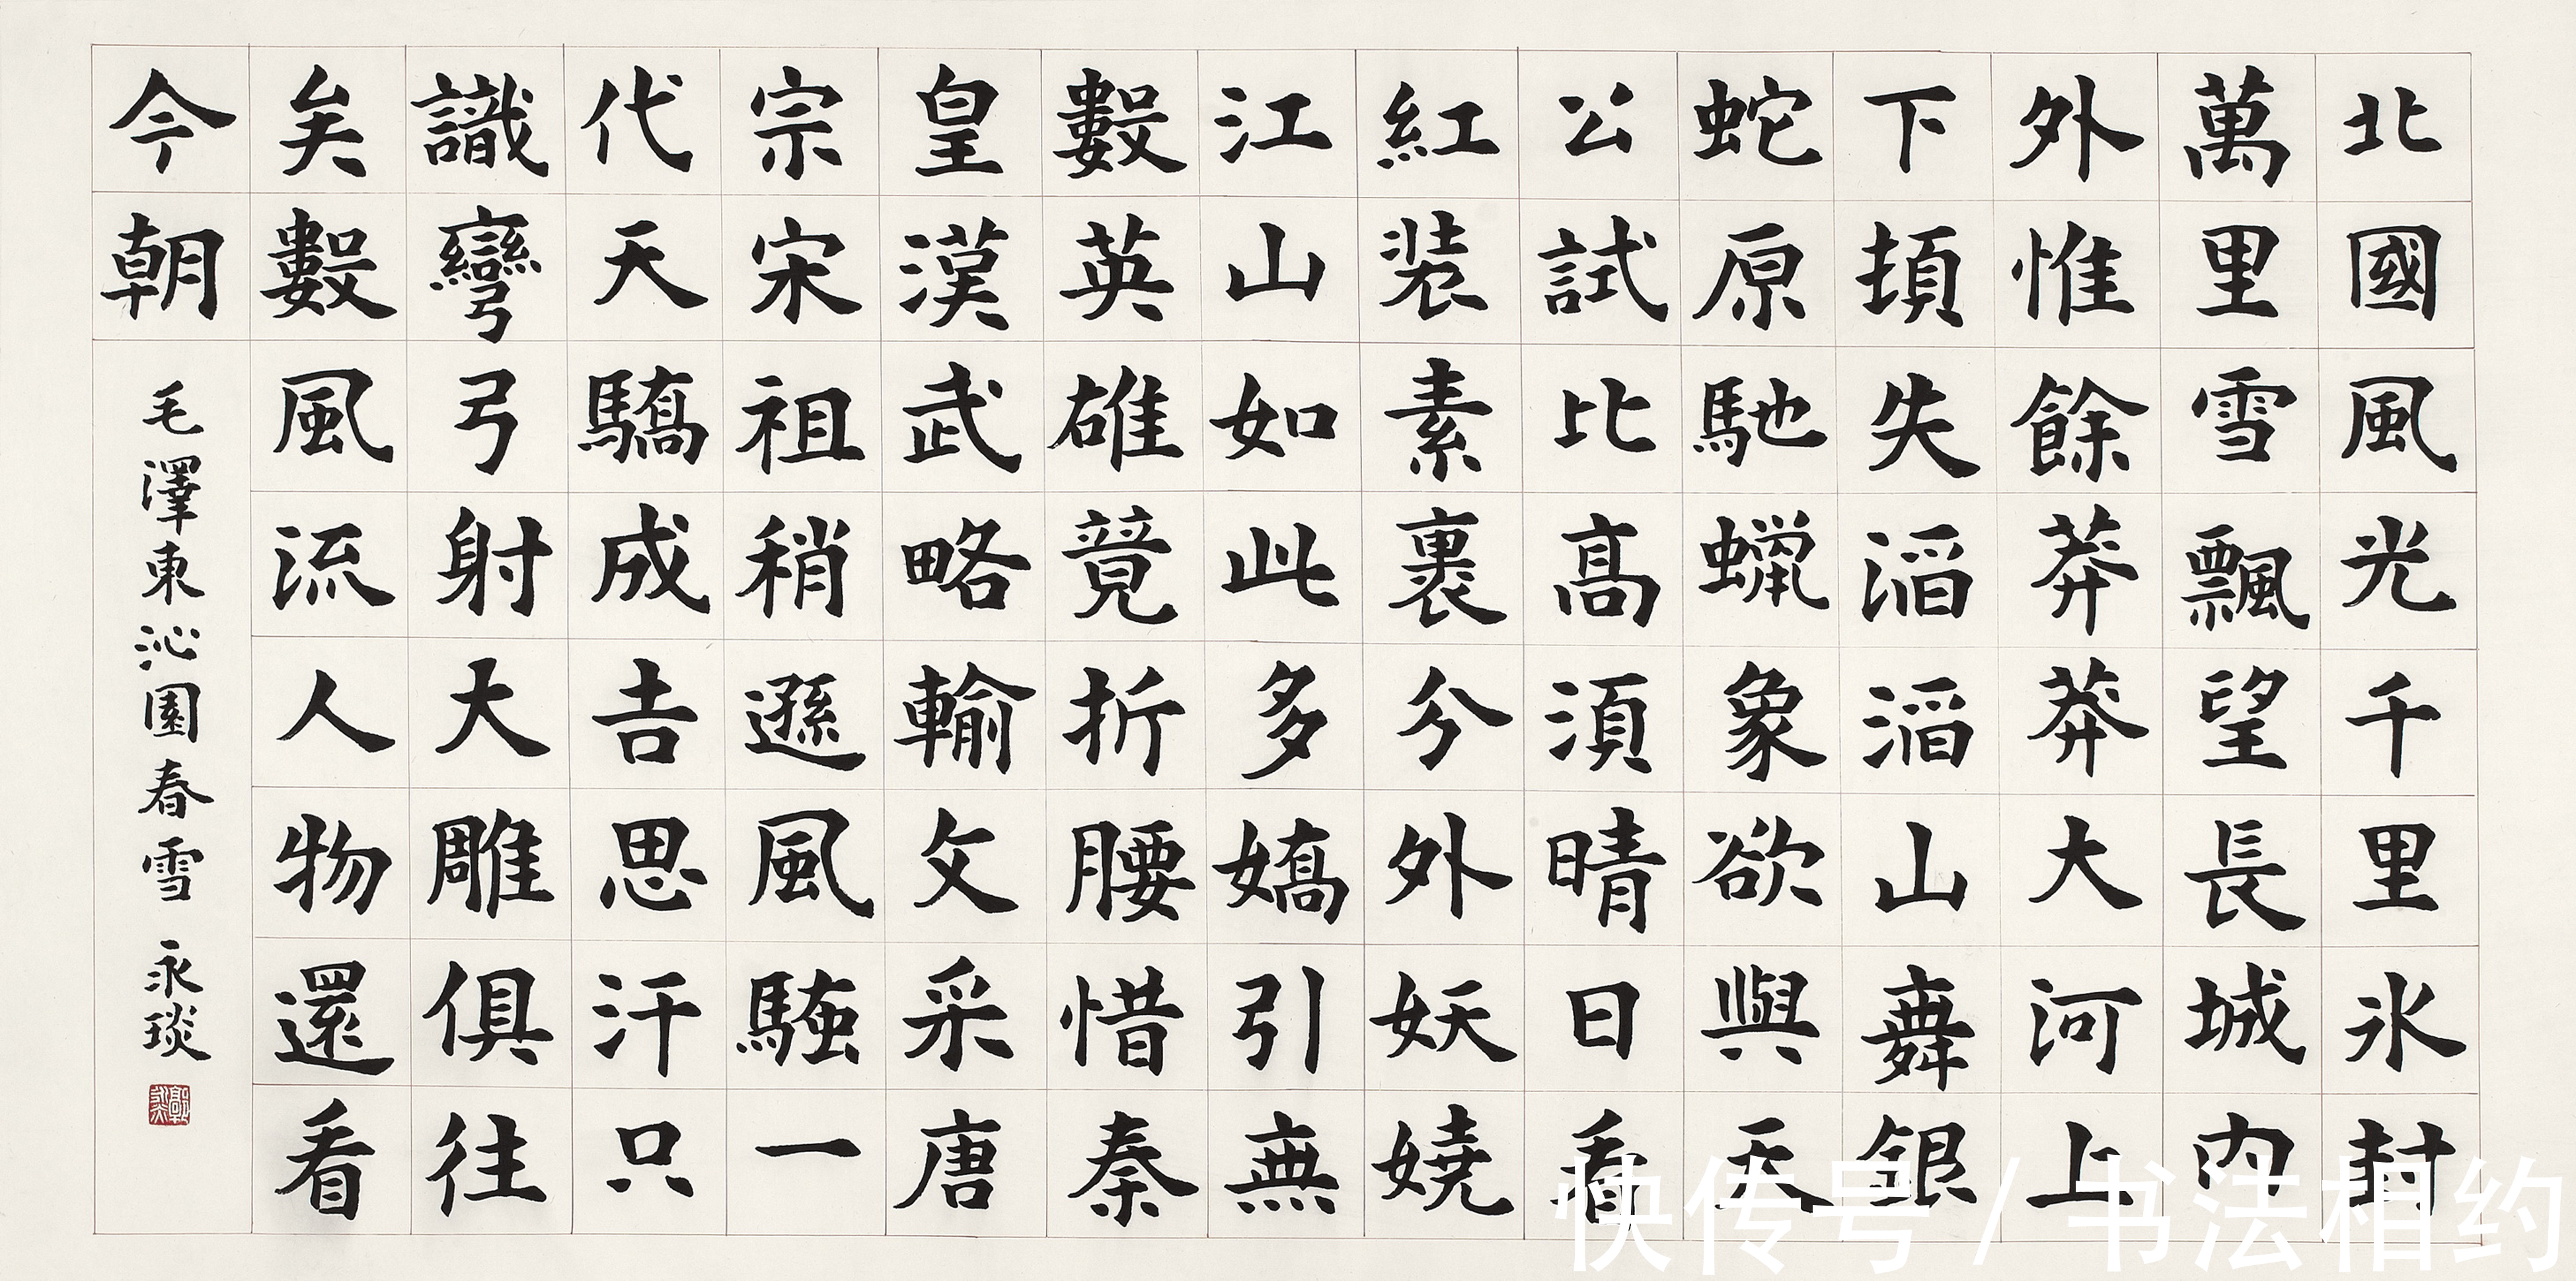 北國風光千里氷封
萬里雪飄望長城内
外惟餘莽莽大河上
下頓失滔滔山舞銀
蛇原馳蝋象欲與天
公試比高須晴日看
紅装素裹分外妖嬈
江山如此多嬌引無
數英雄競折腰惜秦
皇漢武略輸文采唐
宗宋祖稍遜風騷一
代天驕成吉思汗只
識彎弓射大雕俱往
矣數風流人物還看
今朝
毛澤東沁園春雪 永琰
快传号 / 书法相约